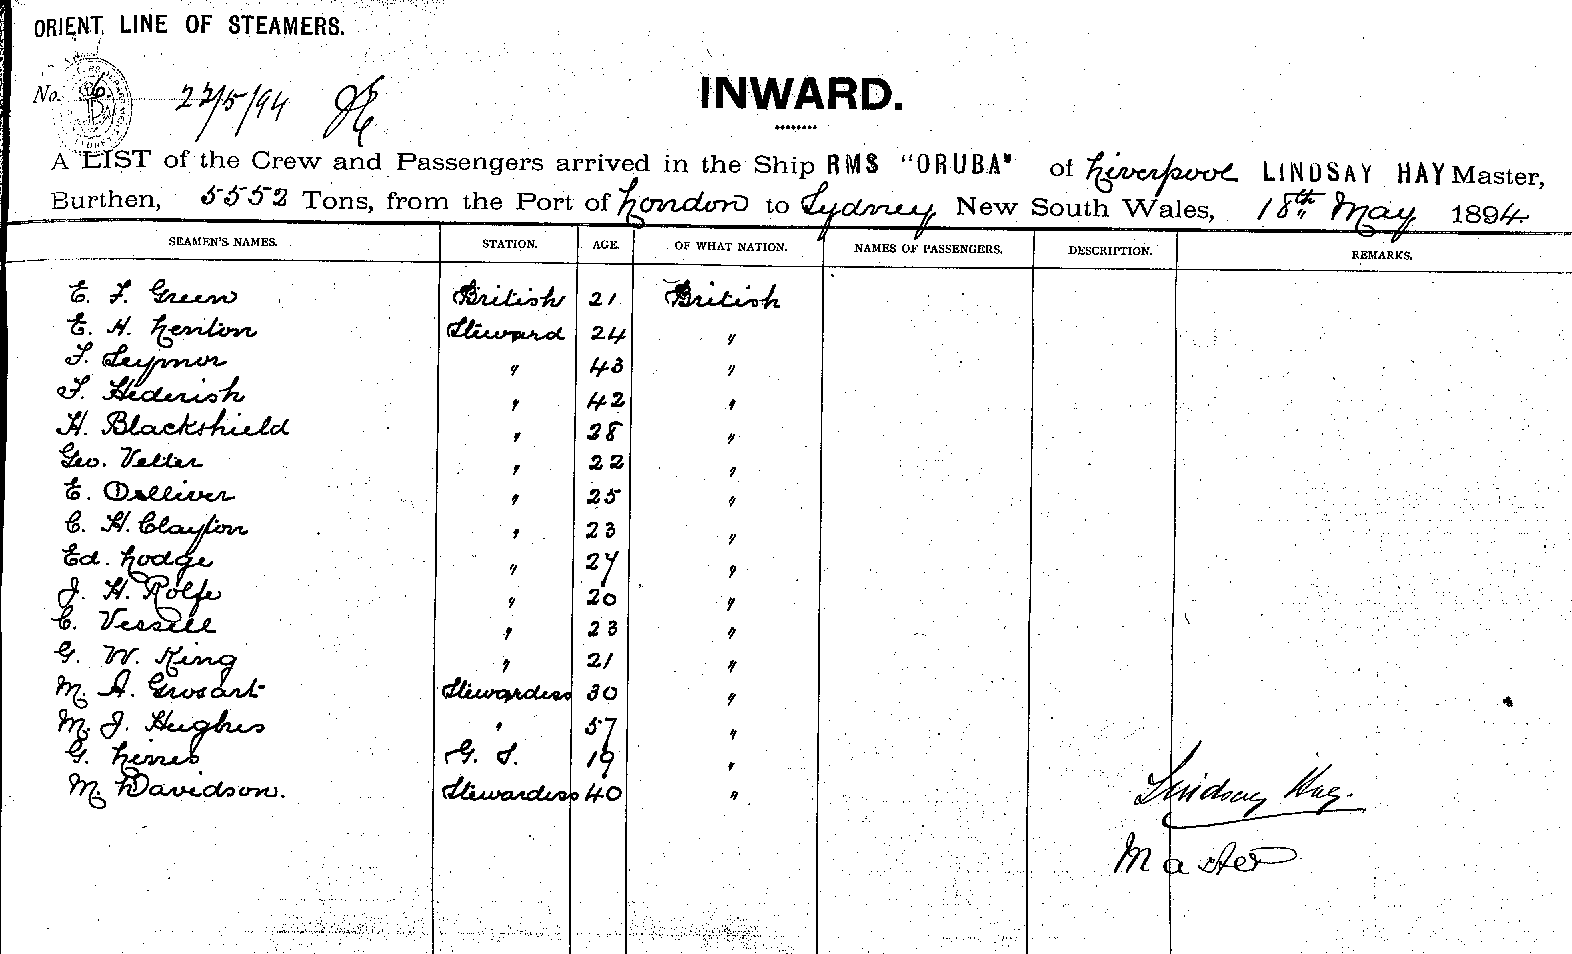 ORIENT LINE OF STEAMERS.
No. 6. 22/5/94
INWARD.
A LIST of the Crew and Passengers arrived in the Ship RMS "ORUBA" of Liverpool LINDSAY HAY Master,
Burthen, 5552 Tons, from the Port of London to Sydney, New South Wales, 18th May 1894
SEAMEN'S NAMES. STATION. AGE. OF WHAT NATION. NAMES OF PASSENGERS. DESCRIPTION. REMARKS.
E. F. Green British 21 British
E. H. Henton Steward 24 "
F. Seymor " 43 "
F. Hederish " 42 "
H. Blackshield " 28 "
Geo. Vetter " 22 "
E. Dolliver " 25 "
C. H. Clayton " 23 "
Ed. Lodge " 27 "
J. H. Rolfe " 20 "
C. Vessell " 23 "
G. W. King " 21 "
M. A. Grosart Stewardess 30 "
M. J. Hughes " 57 "
G. G. S. 19 "
M. Davidson. Stewardess 40 "
Lindsay Hay.
Master